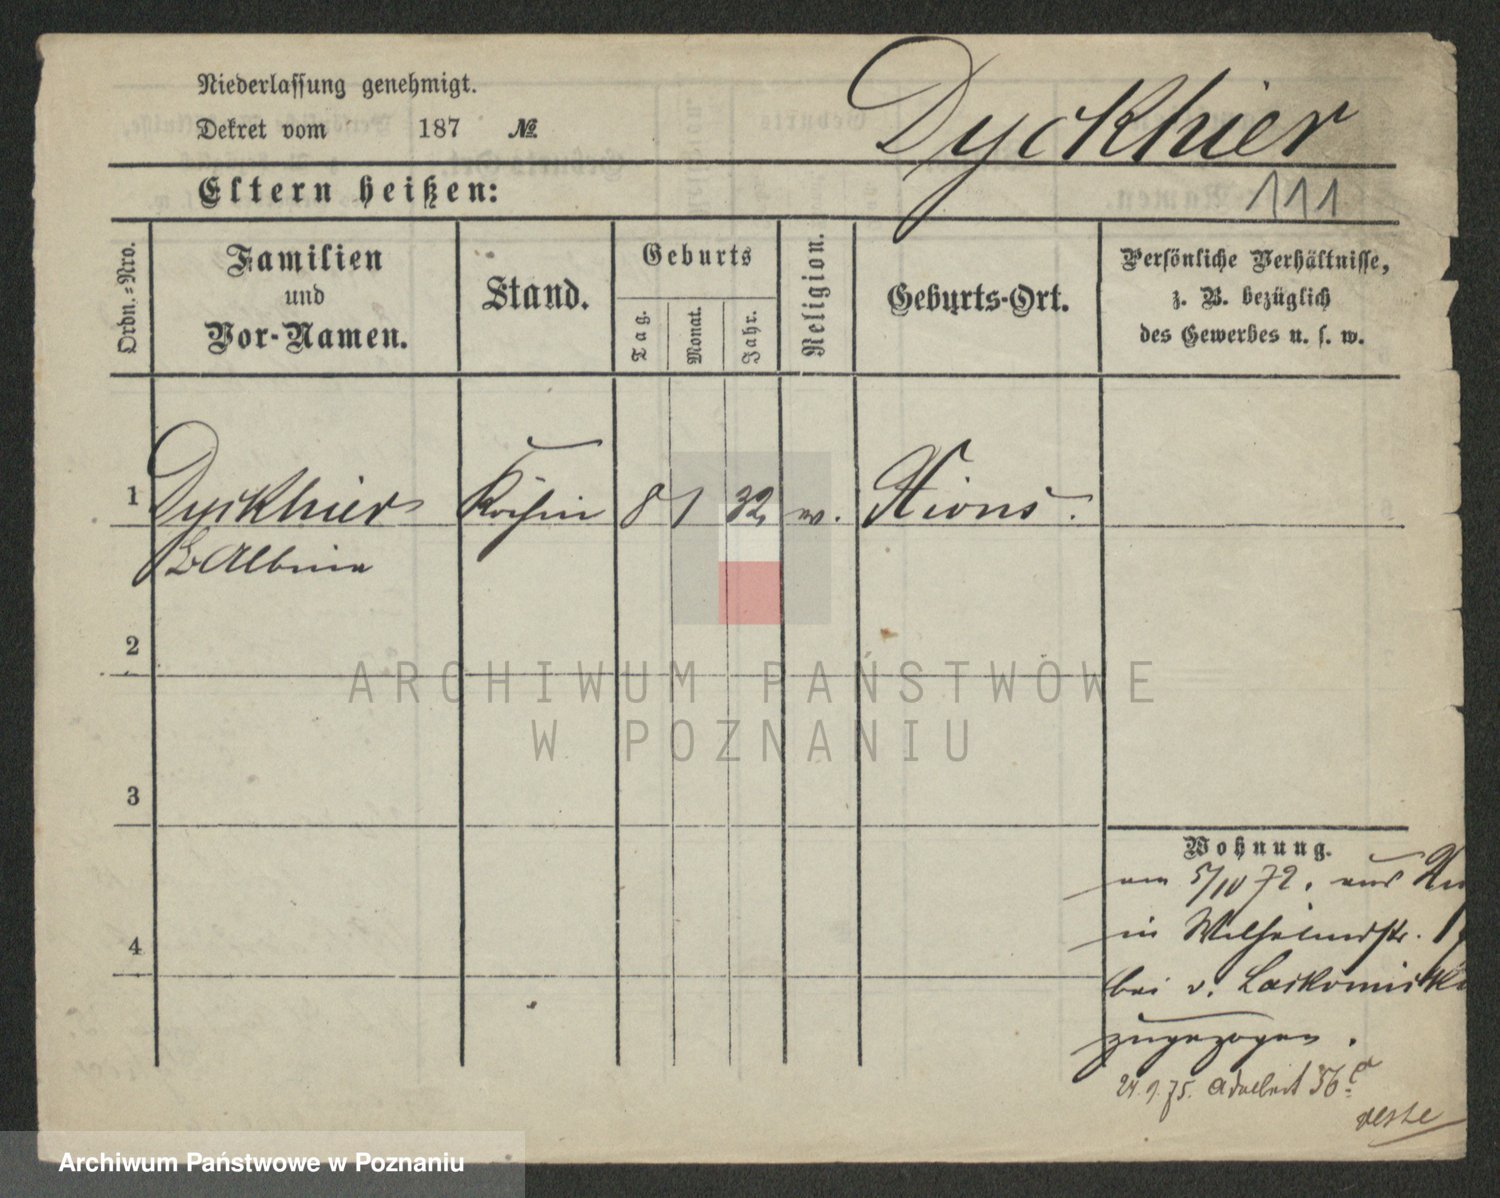 Niederlassung genehmigt.
Dekret vom 187 №
Dyckhier
Eltern heißen:
111
Ordn.-Nro.
Familien
und
Vor-Namen.
Stand.
Geburts
Tag.
Monat.
Jahr.
Religion.
Geburts-Ort.
Persönliche Verhältnisse,
z. B. bezüglich
des Gewerbes u. s. w.
1 Dyckhier Köchin 8 1 32 Xions.
Albina
2
3
4
Wohnung.
am 5/10 72. aus
in Wilhelmstr.
bei v.
zugezogen.
24.9.75. Adalbert
ARCHIWUM PAŃSTWOWE
W POZNANIU
Archiwum Państwowe w Poznaniu